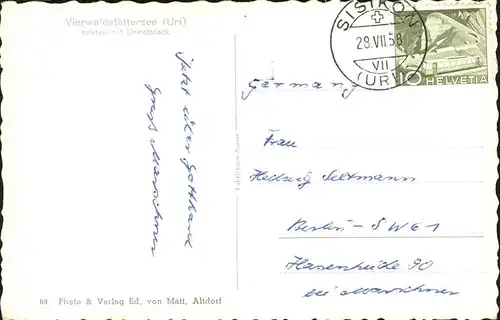 Vierwaldstättersee (Uri)
Isleten mit Urirotstock
SISIKON
28.VII.58
VII
(URI)
10 HELVETIA
Germany
Jetzt über Gotthard
Gruß Marschner
Frau
Hedwig Seltmann
Berlin - SW 61
Hasenheide 90
bei Marschner
89 Photo & Verlag Ed. von Matt, Altdorf